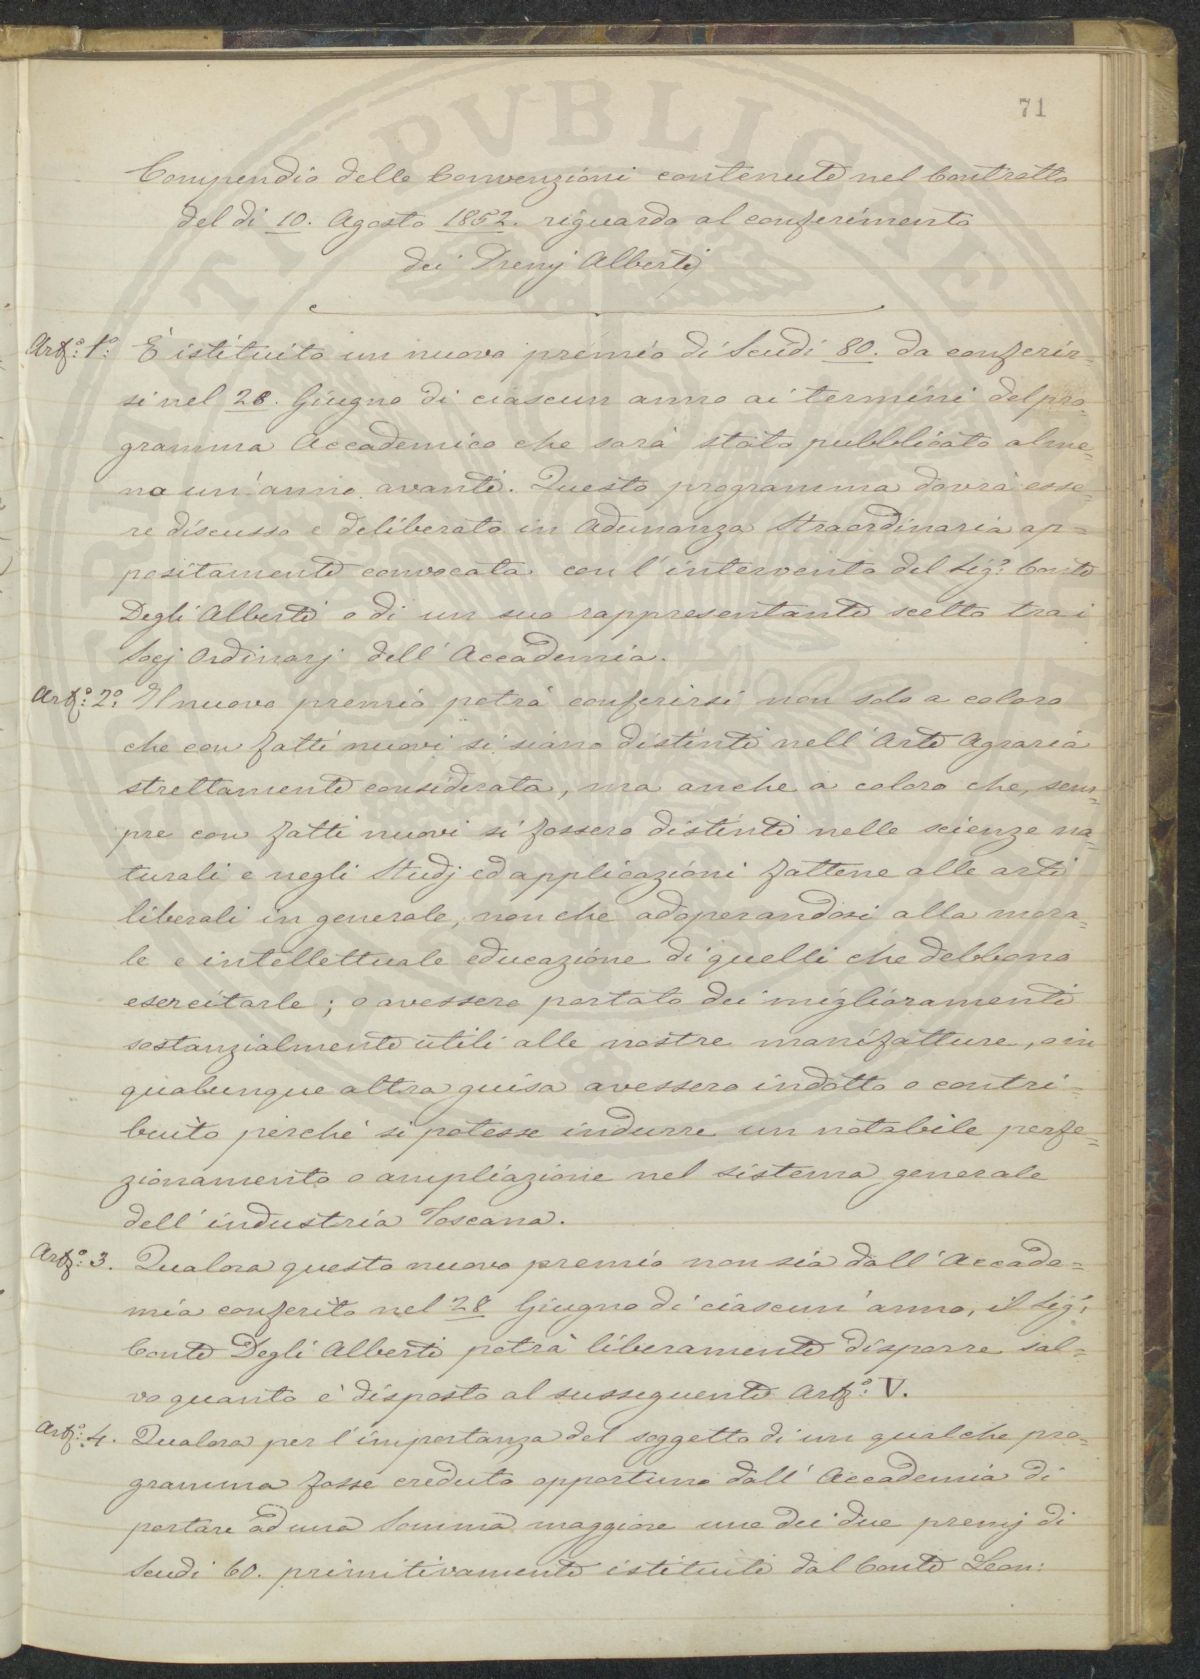 71
Compendio delle Convenzioni contenute nel Contratto
del dì 10. Agosto 1852. riguardo al conferimento
dei Premj Alberti
Artº: 1º: È istituito un nuovo premio di Scudi 80. da conferir=
si nel 28. Giugno di ciascun anno ai termini del pro=
gramma Accademico che sarà stato pubblicato alme=
no un'anno avanti. Questo programma dovrà esse=
re discusso e deliberato in Adunanza Straordinaria ap=
positamente convocata con l'intervento del Sigº: Conte
Degli Alberti o di un suo rappresentante scelto tra i
Socj Ordinarj dell'Accademia.
Artº: 2º: Il nuovo premio potrà conferirsi non solo a coloro
che con fatti nuovi si siano distinti nell'Arte Agraria
strettamente considerata, ma anche a coloro che, sem=
pre con fatti nuovi si fossero distinti nelle scienze na=
turali e negli Studj ed applicazioni fattene alle arti
liberali in generale, non che adoperandosi alla mora=
le e intellettuale educazione di quelli che debbono
esercitarle; o avessero portato dei miglioramenti
sostanzialmente utili alle nostre manifatture, o in
qualunque altra guisa avessero indotto o contri=
buito perchè si potesse indurre un notabile perfe=
zionamento o ampliazione nel sistema generale
dell'industria Toscana.
Artº: 3. Qualora questo nuovo premio non sia dall'Accade=
mia conferito nel 28 Giugno di ciascun'anno, il Sigº:
Conte Degli Alberti potrà liberamente disporre sal=
vo quanto è disposto al susseguente Artº: V.
Artº: 4. Qualora per l'importanza del soggetto di un qualche pro=
gramma fosse creduto opportuno dall'Accademia di
portare ad una Somma maggiore uno dei due premj di
Scudi 60. primitivamente istituiti dal Conte Leon:
PVBLICAE